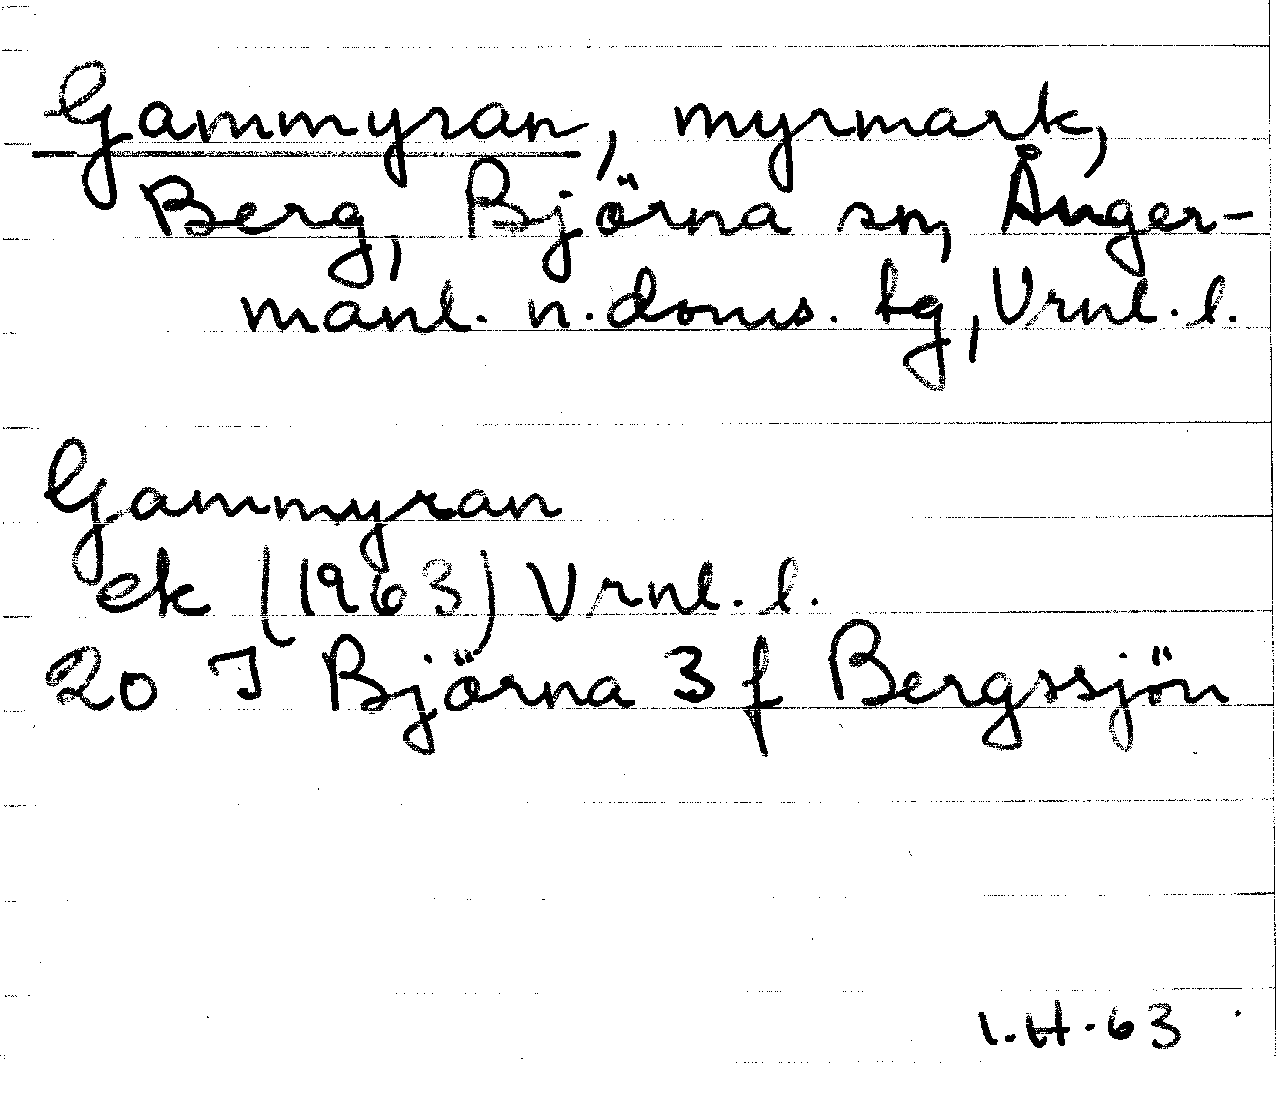 Gammyran, myrmark,
Berg, Björna sn, Ånger-
manl. n. doms. tg, Vrnl. l.
Gammyran
ek (1963) Vrnl. l.
20 I Björna 3 f Bergssjön
I.H.63